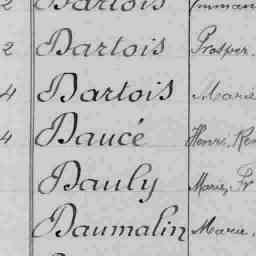 2 Dartois Emman
2 Dartois Prosper
4 Dartois Marie
4 Daucé Henri, Ren
Dauly Marie, Fr
Daumalin Marie,